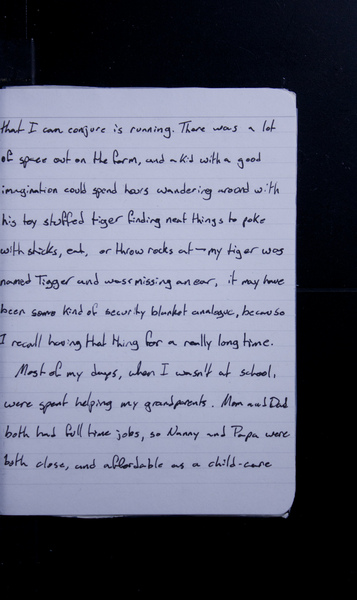 that I can conjure is running. There was a lot
of space out on the farm, and a kid with a good
imagination could spend hours wandering around with
his toy stuffed tiger finding neat things to poke
with sticks, eat, or throw rocks at — my tiger was
named Tigger and was missing an ear, it may have
been some kind of security blanket analogue, because
I recall having that thing for a really long time.
Most of my days, when I wasn't at school,
were spent helping my grandparents. Mom and Dad
both had full time jobs, so Nanny and Papa were
both close, and affordable as a child-care